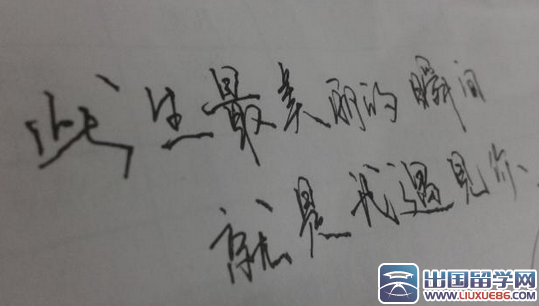 此生最美丽的瞬间
就是我遇见你.
出国留学网
WWW.LIUXUE86.COM